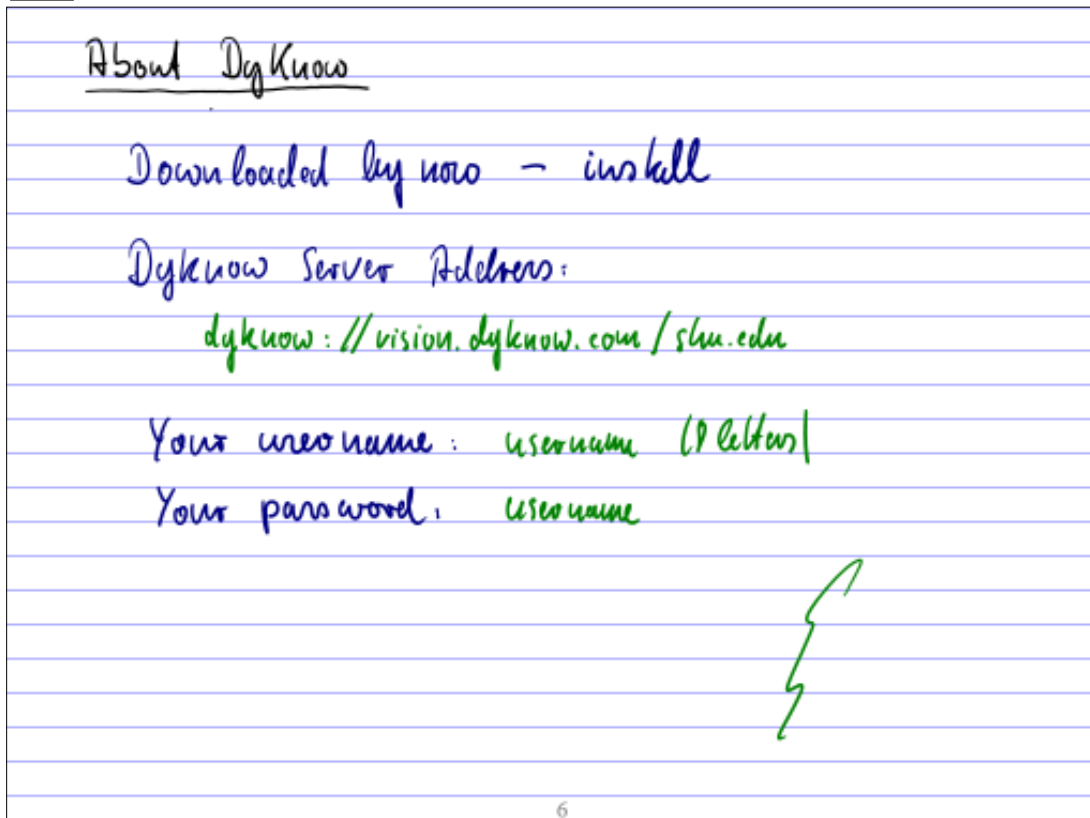 About DyKnow
Downloaded by now – install
DyKnow Server Address:
dyknow://vision.dyknow.com/shu.edu
Your username: username (8 letters)
Your password: username
6